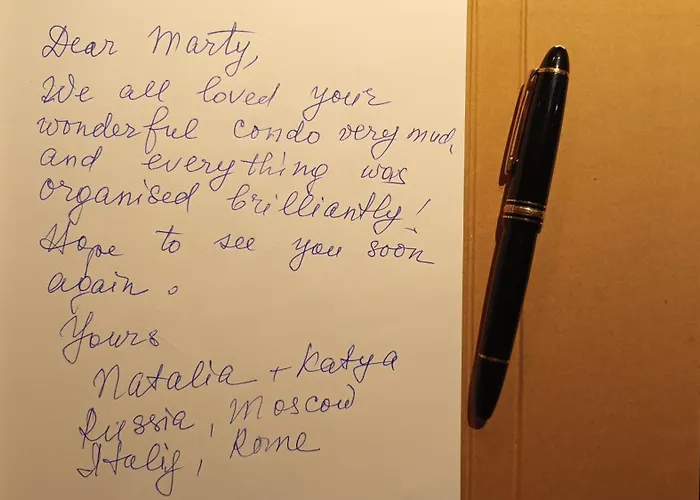 Dear Marty,
We all loved your
wonderful condo very much,
and everything was
organised brilliantly!
Hope to see you soon
again.
Yours
Natalia + Katya
Russia, Moscow
Italy, Rome